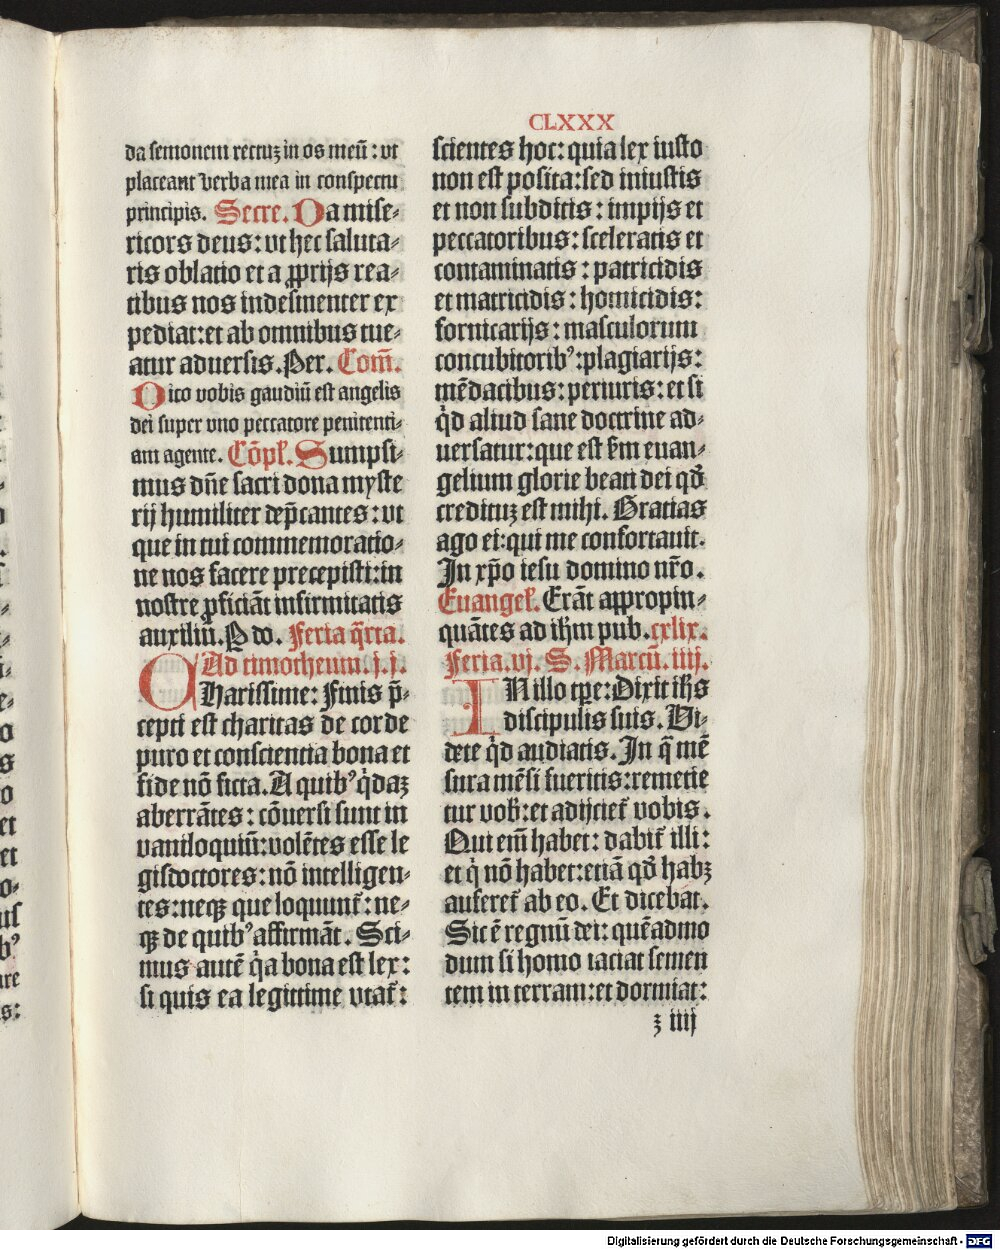 CLXXX
da semonem rectuꝫ in os meū : vt
placeant verba mea in conspectu
principis. Secre. Da mise⸗
ricors deus: vt hec saluta⸗
ris oblatio et a ꝓprijs rea⸗
tibus nos indesinenter ex
pediat: et ab omnibus tue⸗
atur aduersis. Per. Com̄.
Dico vobis gaudiū est angelis
dei super vno peccatore penitenti⸗
am agente. Cōpl. Sumpsi⸗
mus dn̄e sacri dona myste
rij humiliter dep̄cantes : vt
que in tui commemoratio⸗
ne nos facere precepisti: in
nostre ꝓficiāt infirmitatis
auxiliū. P do. Feria q̄rta.
Ad timotheum. j. j.
CHarissime: Finis p̄⸗
cepti est charitas de corde
puro et conscientia bona et
fide nō ficta. A quibꝰ q̇daꝫ
aberrātes : cōuersi sunt in
vaniloquiū: volētes esse le
gisdoctores: nō intelligen⸗
tes: neqꝫ que loquunt̄: ne⸗
qꝫ de quibꝰ affirmāt. Sci⸗
mus autē q̇a bona est lex:
si quis ea legittime vtat̄:
scientes hoc: quia lex iusto
non est posita: sed iniustis
et non subditis : impijs et
peccatoribus: sceleratis et
contaminatis : patricidis
et matricidis : homicidis:
fornicarijs : masculorum
concubitoribꝰ: plagiarijs:
mēdacibus: periuris: et si
q̇d aliud sane doctrine ad⸗
uersatur: que est ẜm euan⸗
gelium glorie beati dei qđ
credituꝫ est mihi. Gratias
ago ei: qui me confortauit.
In xp̄o iesu domino nr̄o.
Euangel. Erāt appropin⸗
quātes ad ihm pub. cxlix.
Feria. vj. S. Marcū. iiij.
IN illo tꝑe: Dixit ihs
discipulis suis. Vi⸗
dete q̇d audiatis. In q̄ mē
sura mēsi fueritis: remetie
tur vob̄: et adijciet̄ vobis.
Qui em̄ habet: dabit̄ illi:
et q̇ nō habet: etiā qđ habꝫ
auferet̄ ab eo. Et dicebat.
Sic ē regnū dei: quēadmo
dum si homo iaciat semen
tem in terram: et dormiat:
z iiij
Digitalisierung gefördert durch die Deutsche Forschungsgemeinschaft - DFG